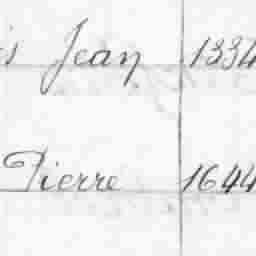 is Jean 1334
Pierre 1644